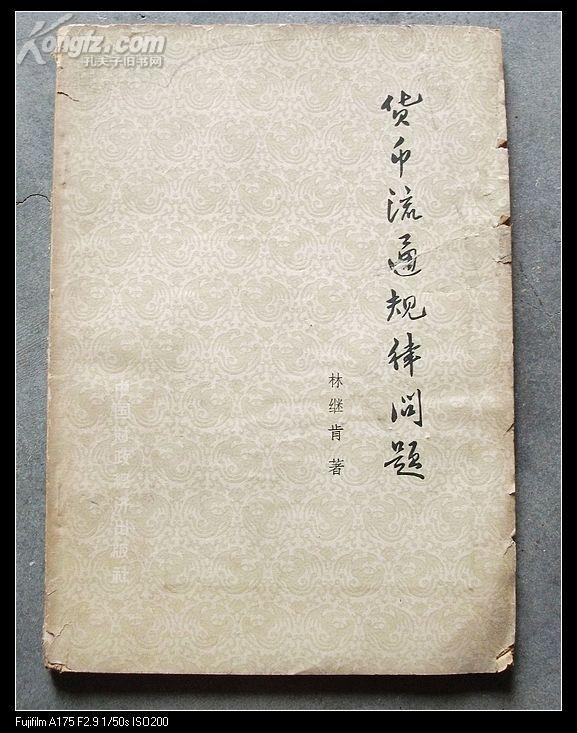 Kongfz.com
孔夫子旧书网
货币流通规律问题
林继肯 著
中国财政经济出版社
Fujifilm A175 F2.9 1/50s ISO200